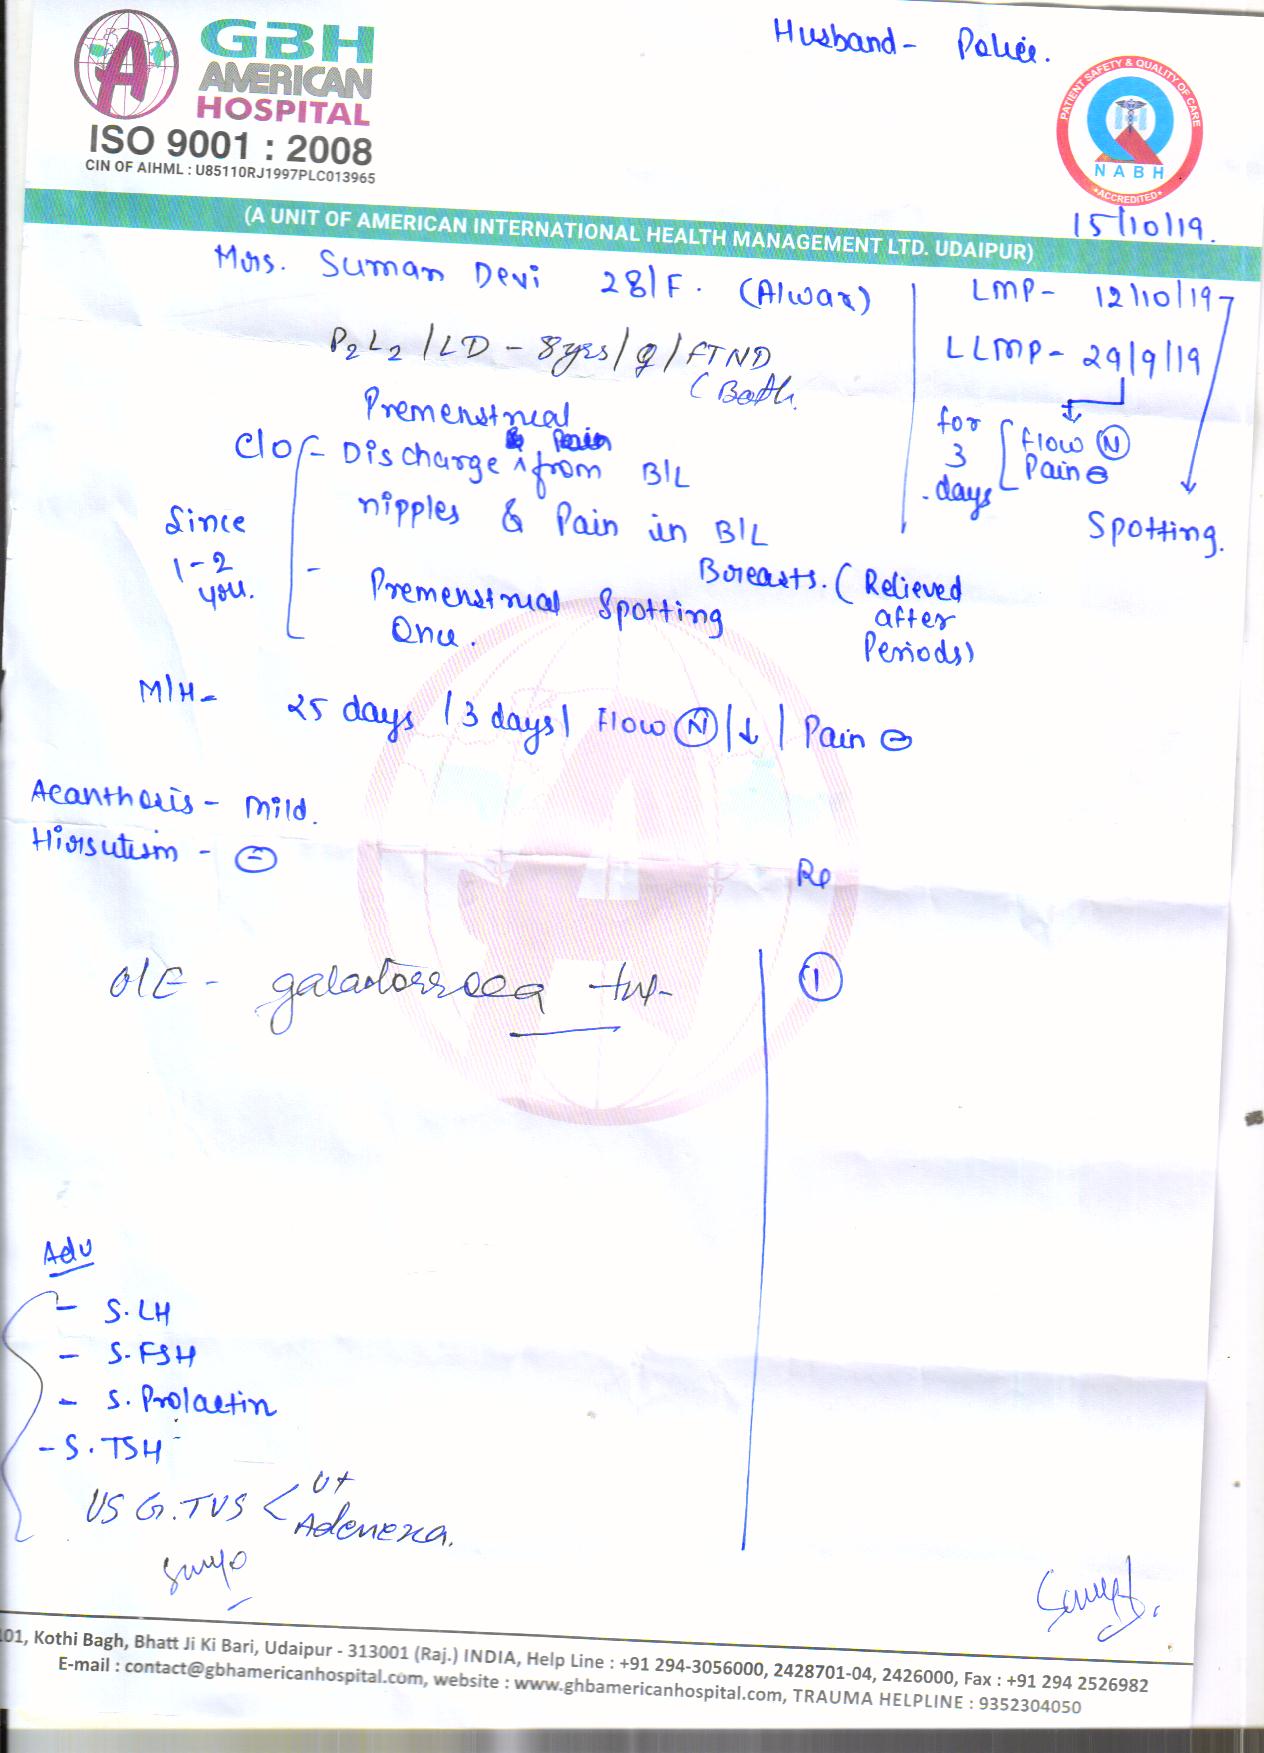 GBH
AMERICAN
HOSPITAL
ISO 9001 : 2008
CIN OF AIHML : U85110RJ1997PLC013965
Husband - Police.
PATIENT SAFETY & QUALITY OF CARE
NABH
ACCREDITED
(A UNIT OF AMERICAN INTERNATIONAL HEALTH MANAGEMENT LTD. UDAIPUR)
15/10/19.
Mrs. Suman Devi 28/F. (Alwar)
LMP- 12/10/19
P2L2/LD - 8yrs/ /FTND
(Both.
LLMP- 29/9/19
for 3 days
Flow (N)
Pain ⊖
Spotting.
Premenstrual
C/o - Discharge from B/L
nipples & Pain in B/L
Breasts. (Relieved
after
Periods)
Since
1-2
- Premenstrual Spotting
Once.
M/H- 25 days /3 days/ Flow (N)/↓/ Pain ⊖
Acanthosis - Mild.
Hirsutism - ⊖
O/E - galactorrhoea
①
Adv
- S. LH
- S. FSH
- S. Prolactin
- S. TSH
USG. TVS < Ut
Adenexa.
101, Kothi Bagh, Bhatt Ji Ki Bari, Udaipur - 313001 (Raj.) INDIA, Help Line : +91 294-3056000, 2428701-04, 2426000, Fax : +91 294 2526982
E-mail : contact@gbhamericanhospital.com, website : www.ghbamericanhospital.com, TRAUMA HELPLINE : 9352304050